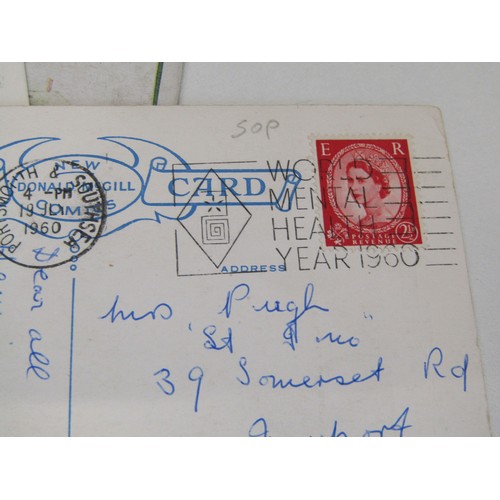 50p
NEW
DONALD McGILL
COMICS
CARD
PORTSMOUTH & SOUTHSEA
4 - PM
1960
WORLD
MENTAL
HEALTH
YEAR 1960
E R
POSTAGE
REVENUE
2½D
ADDRESS
Dear all
Mrs Pugh
"St
39 Somerset Rd